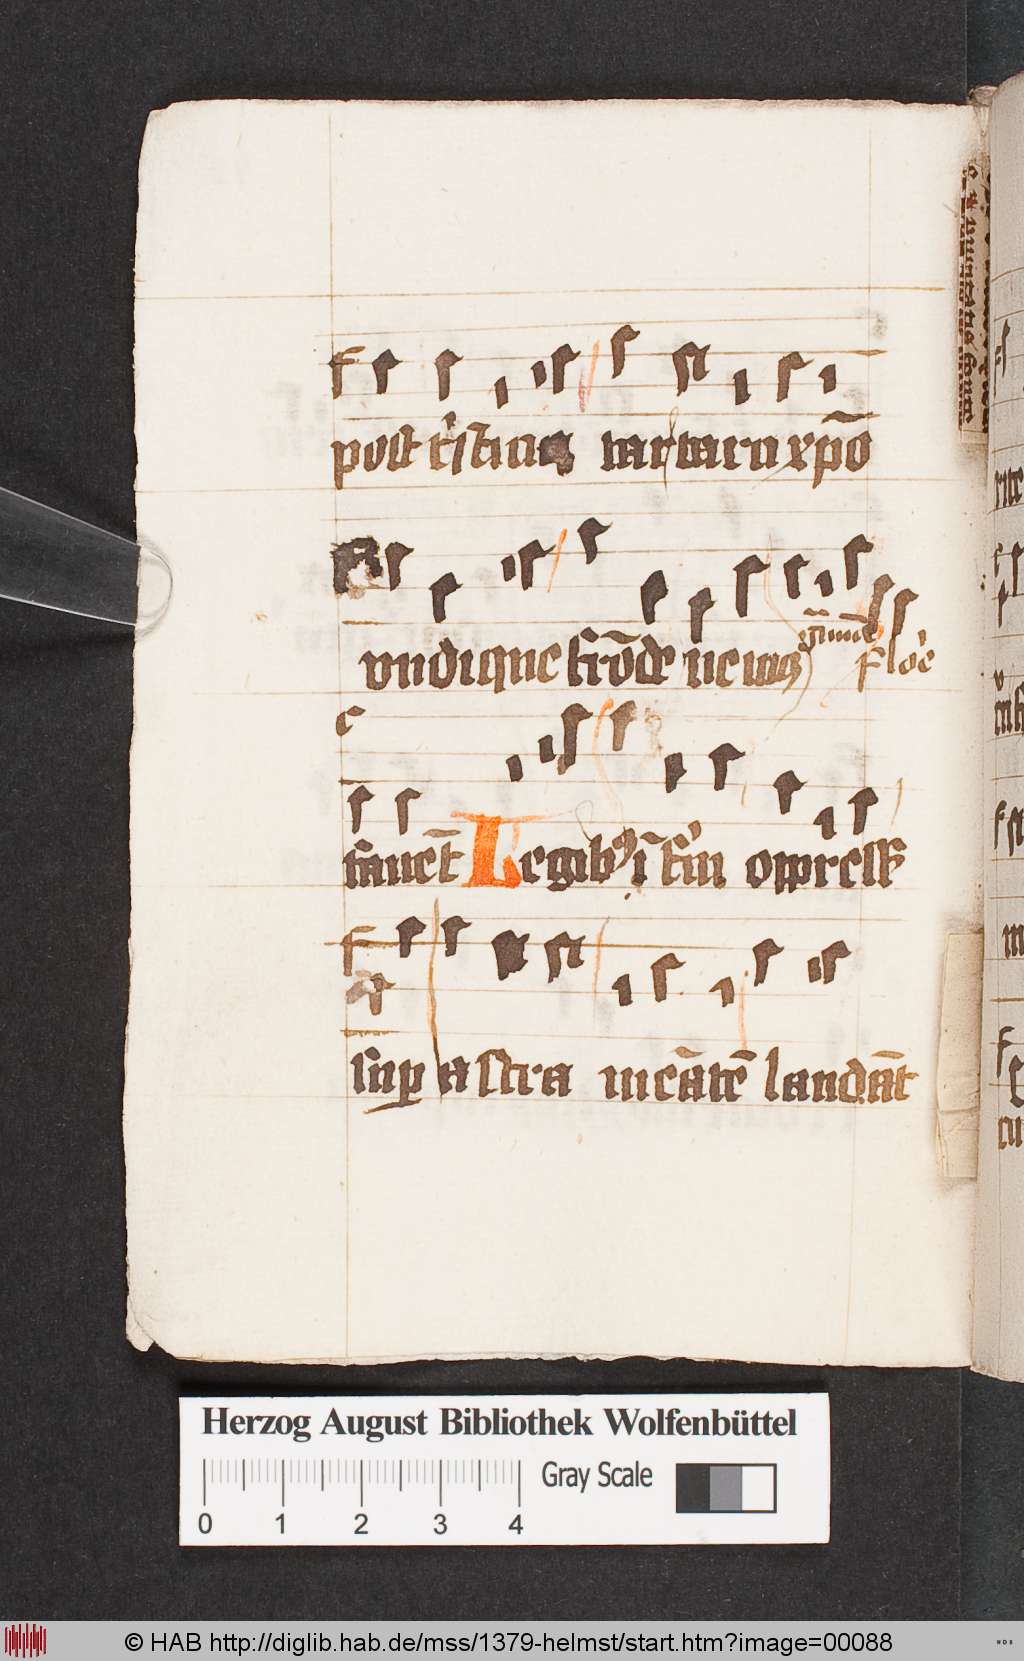 post tͥsticia tartara xp̄o
vndique frōde nemꝰ gͣmīe floͤe
fauēt Legibꝰ īfͥni oppreſſ
ſup̱ astra meātē laudāt
Herzog August Bibliothek Wolfenbüttel
0 1 2 3 4 Gray Scale
© HAB http://diglib.hab.de/mss/1379-helmst/start.htm?image=00088